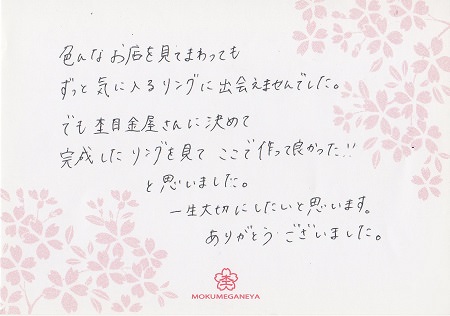 色んなお店を見てまわっても
ずっと気に入るリングに出会えませんでした。
でも杢目金屋さんに決めて
完成したリングを見て ここで作って良かった!!
と思いました。
一生大切にしたいと思います。
ありがとう ございました。
杢
MOKUMEGANEYA